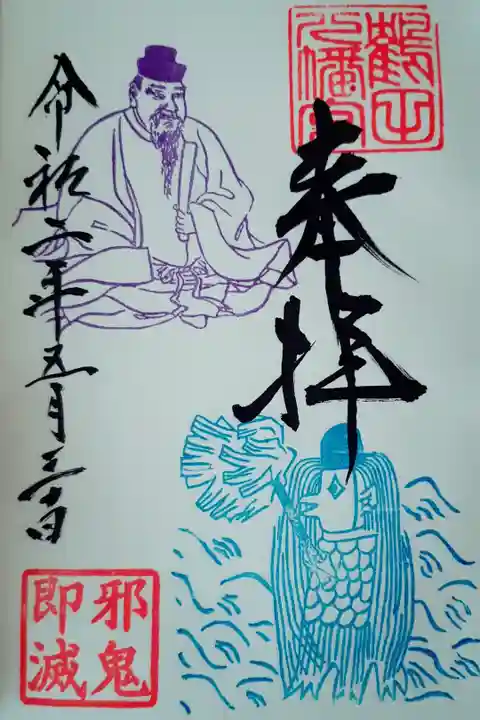 鶴田
八幡宮
奉拝
令和二年五月三十日
邪鬼
即滅